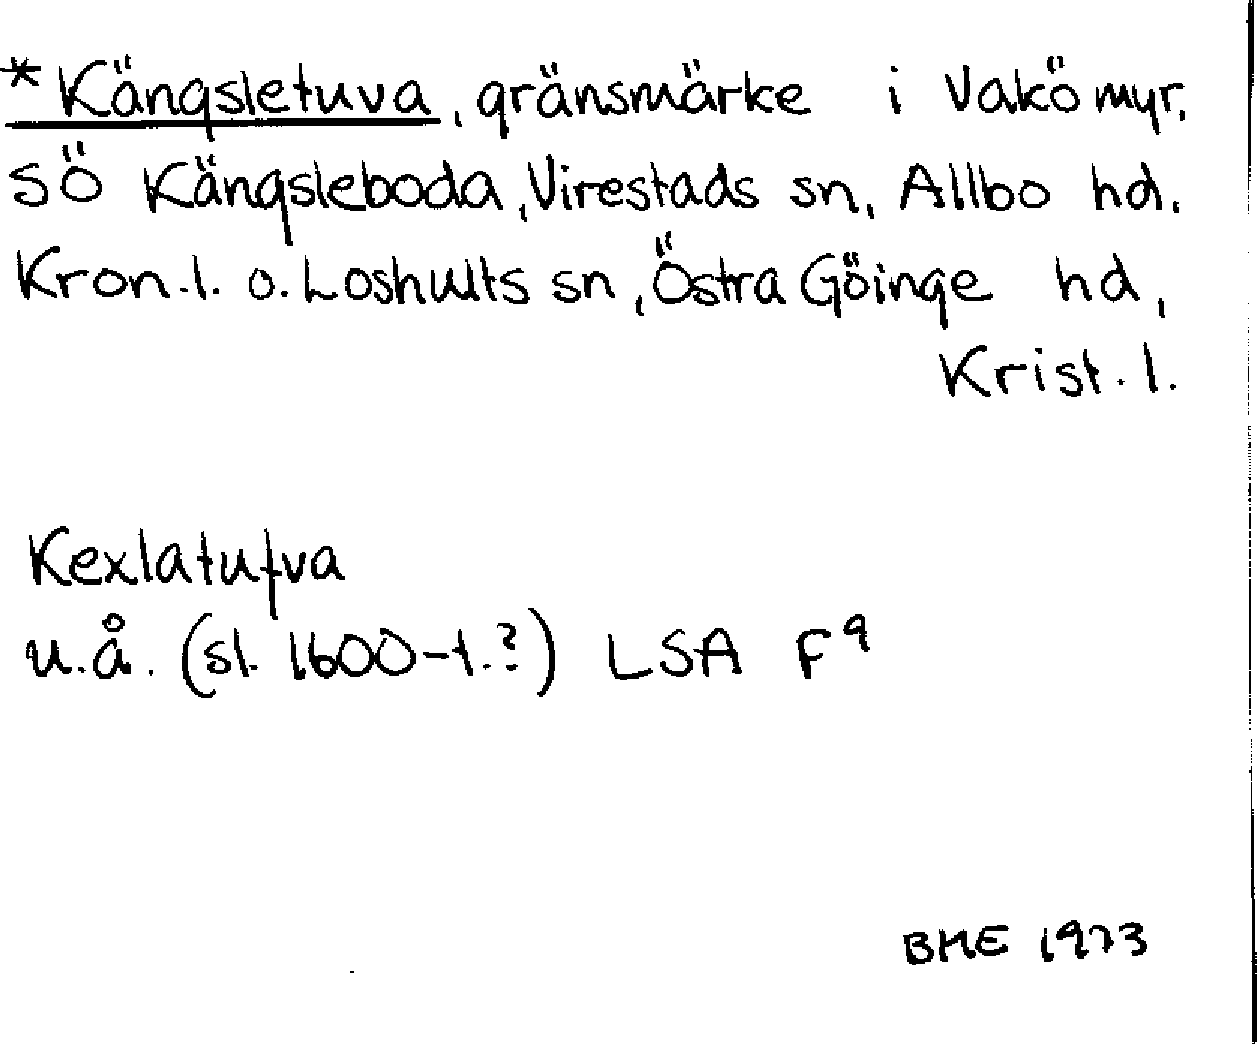 *Kängsletuva, gränsmärke i Vakö myr,
sö Kängsleboda, Virestads sn, Allbo hd.
Kron.l. o. Loshults sn, Östra Göinge hd,
Krist. l.
Kexlatufva
u.å. (sl. 1600-t.?) LSA F⁹
BME 1973